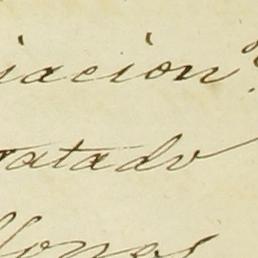 iacion
ratado
llones